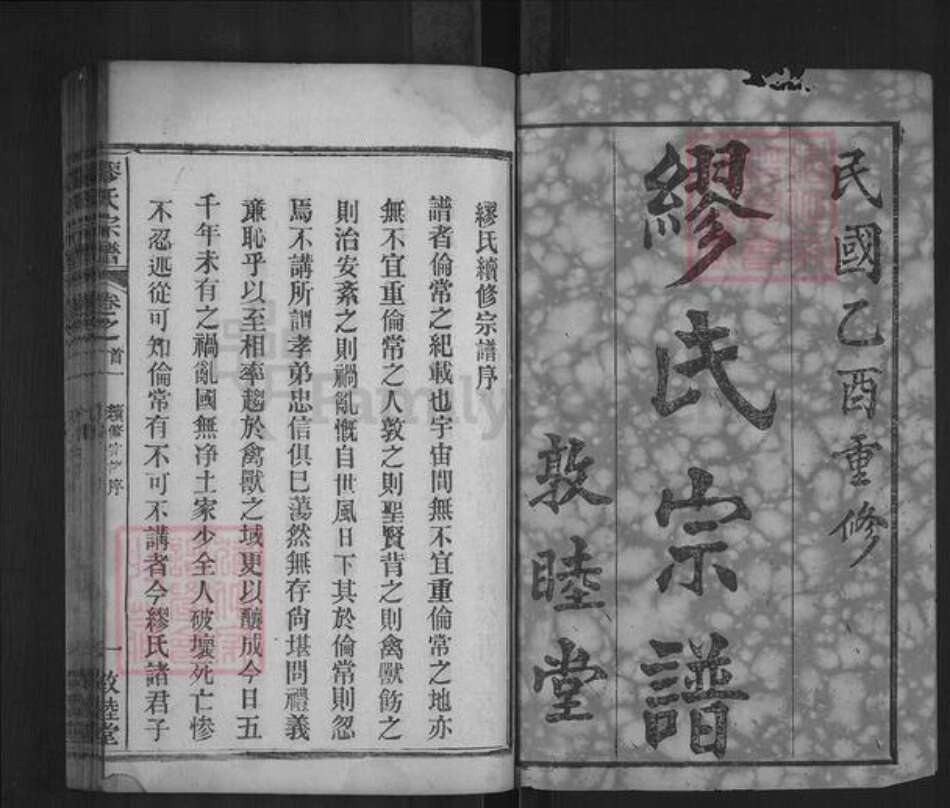 民國乙酉重修
繆氏宗譜
敦睦堂
繆氏續修宗譜序
譜者倫常之紀載也宇宙間無不宜重倫常之地亦
無不宜重倫常之人敦之則聖賢背之則禽獸飭之
則治安紊之則禍亂慨自世風日下其於倫常則忽
焉不講所謂孝弟忠信俱已蕩然無存尙堪問禮義
廉恥乎以至相率趨於禽獸之域更以釀成今日五
千年未有之禍亂國無净土家少全人破壞死亡慘
不忍述從可知倫常有不可不講者今繆氏諸君子
繆氏宗譜
卷之首
續修宗譜序
一
敦睦堂
Family